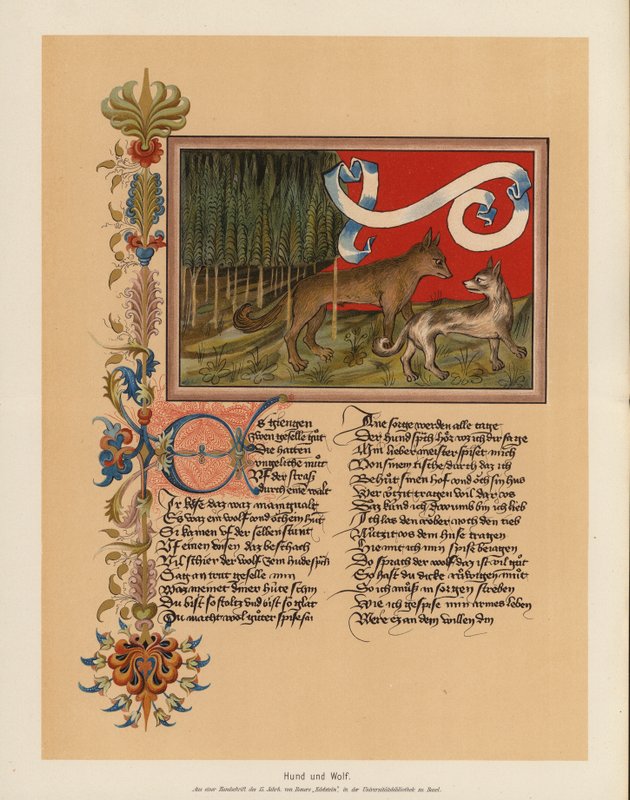 Es giengen
zwen geselle gůt
Die hatten
ungeliche můt
Uf der straß
durch eine walt
Ir kose daz waz manigualt
Es waz ein wolf und öch ein hunt
Si kamen uf der selben stunt
Uf einen wasen daz beschach
Vil schier der wolf zem hude spch
Sag an trut geselle min
Waz meinet diner hute schin
Du bist so stoltz und bist so glat
Du macht wol gůter spise
Ane sorge werden alle tage
Der hund spch hör wz ich dir sage
Min lieber meister spiset mich
Von sinem tische durch daz ich
Behůt sinen hof und öch sin hus
Wer ützit tragen wil dar us
Daz künd ich darumb bin ich lieb
Ich las den röber noch den tieb
Nützit us dem huse tragen
Hie mit ich min spise beiagen
Do sprach der wolf daz ist vil gůt
So hast du dicke rüwigen můt
So ich můß in sorgen streben
Wie ich gespise min armes leben
Were ez an dem willen din
Hund und Wolf.
Aus einer Handschrift des 15. Jahrh. von Boners „Edelstein", in der Universitätsbibliothek zu Basel.